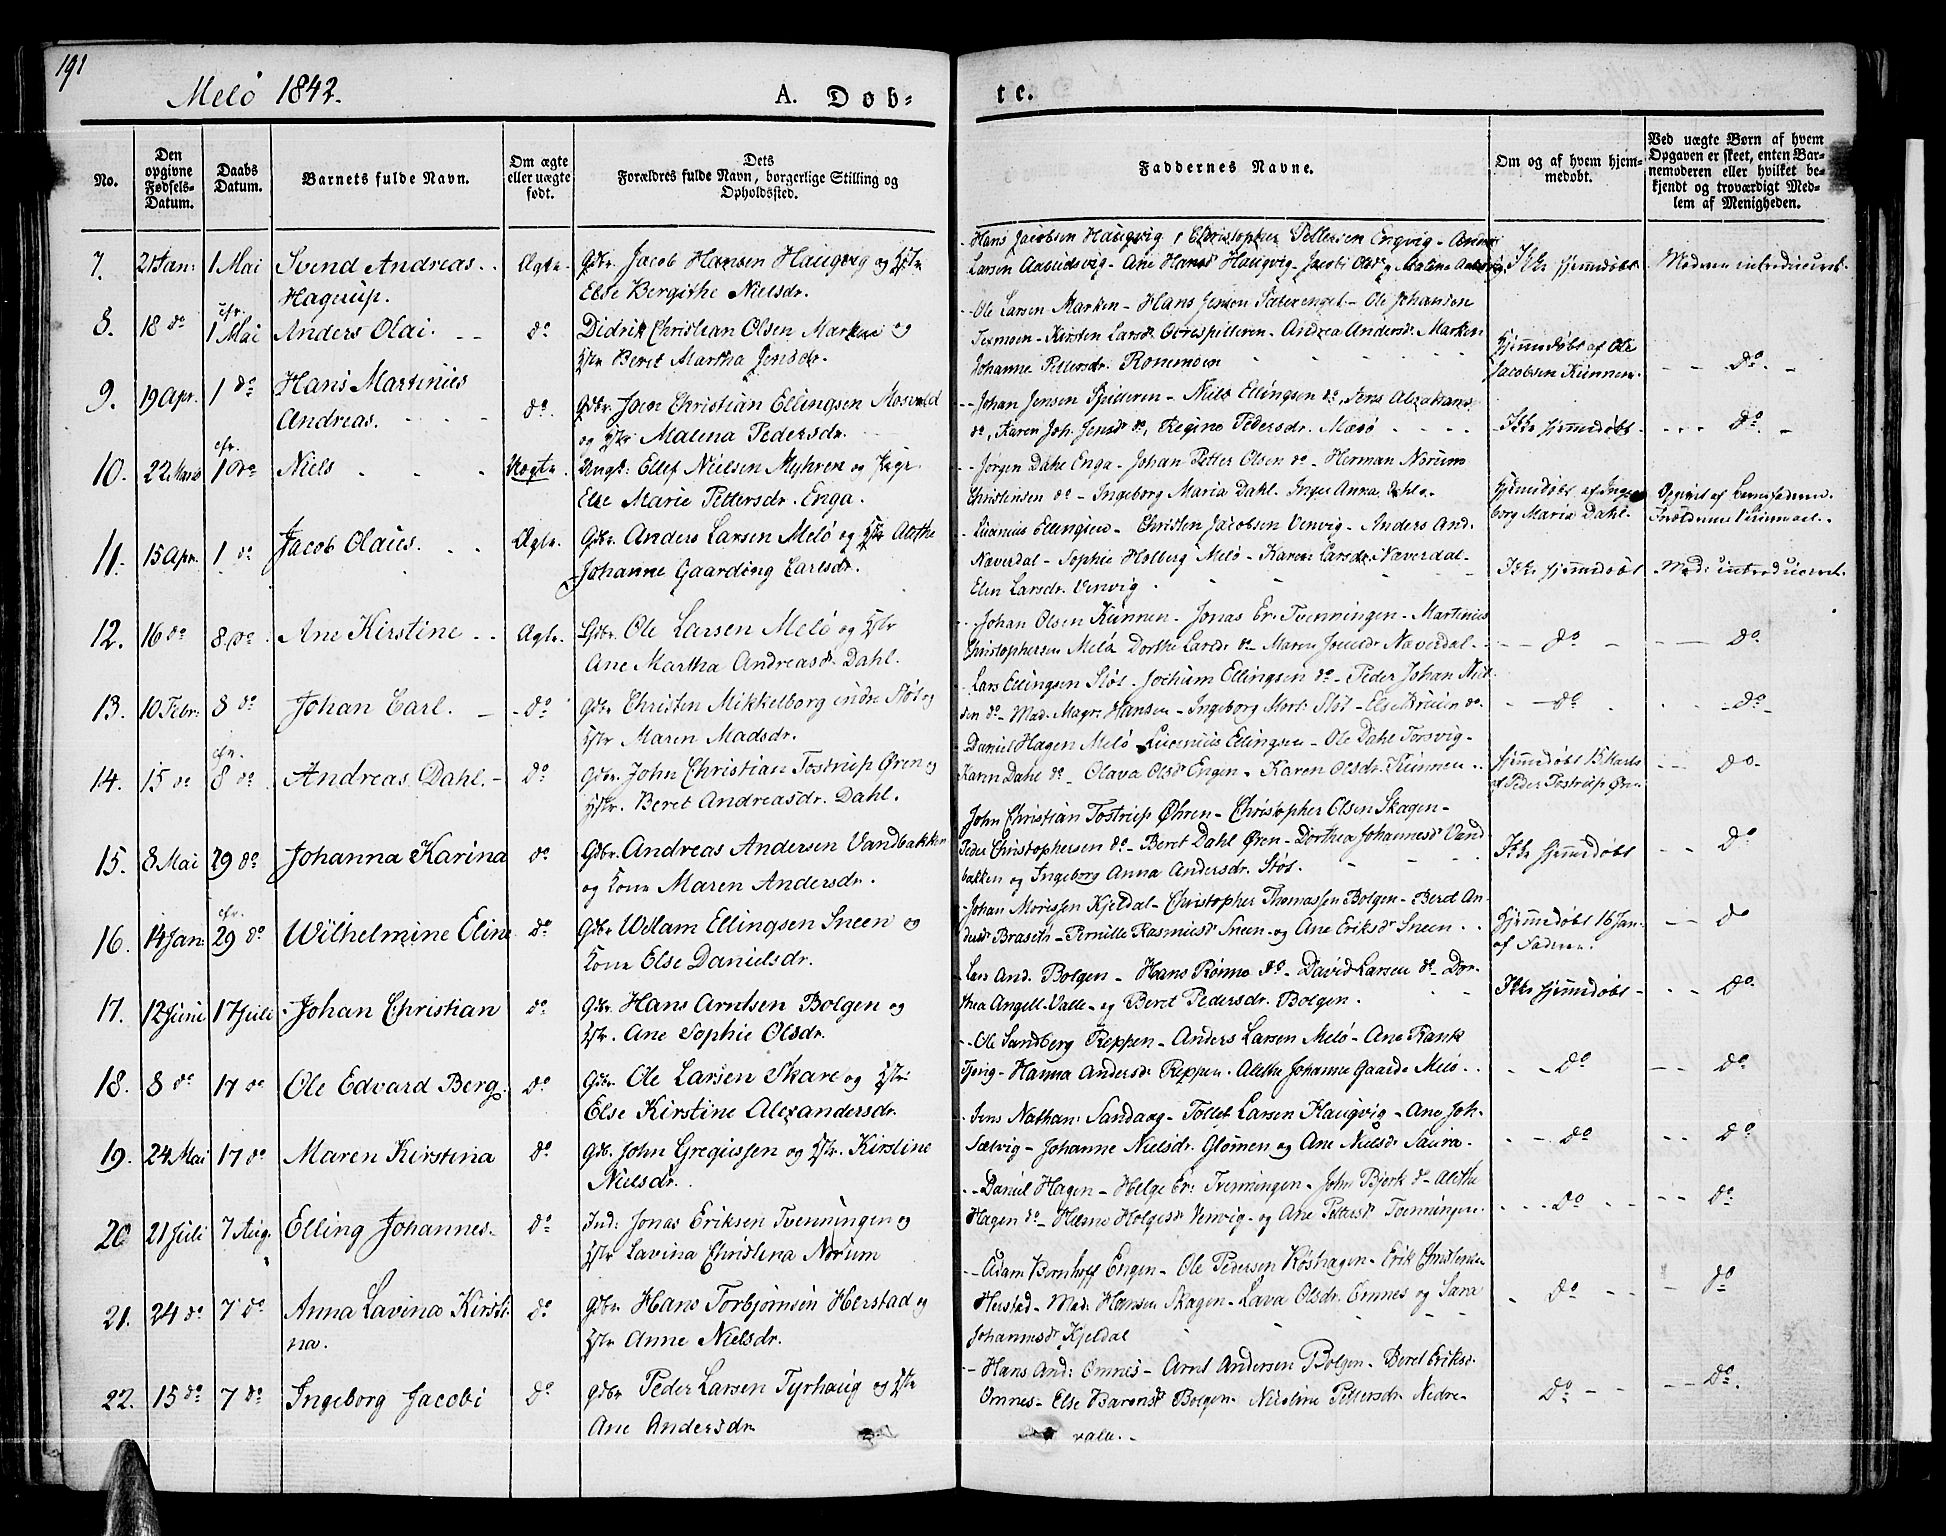 191
Melö 1842.
A. Döb-
te.
No.
Den opgivne Fødsels-Datum.
Daabs Datum.
Barnets fulde Navn.
Om ægte eller uægte født.
Dets Forældres fulde Navn, borgerlige Stilling og Opholdssted.
Faddernes Navne.
Om og af hvem hjemmedøbt.
Ved uægte Børn af hvem Opgaven er skeet, enten Barnemoderen eller hvilket bekjendt og troværdigt Medlem af Menigheden.
7. 21 Jan: 1 Mai Svend Andreas Hagerup. Ægte. Gdbr. Jacob Hansen Haugvig og Hstr
Else Bergithe Nielsdr.
Hans Jacobsen Haugvig, Christopher Pettersen Engvig - Anders
Larsen - Ane Hansd Haugvig -
Ikke hjemmedøbt Moderen introduceret.
8. 18 do cfr. 1 Mai Anders Olai. do Didrik Christian Olsen Marken og
Hstr Beret Martha Jensdr.
Ole Larsen Marken - Hans Jensen Sæterenget - Ole Johansen
Texmoen - Kirsten Larsd - Andrea Andersd: Marken
Johanne Pettersdr. Rommoen
Hjemmedøbt af Ole
Jacobsen Kunnen. do
9. 19 Apr. 1 do Hans Martinus
Andreas. do. Gdbr. Joen Christian Ellingsen Mosvold
og Hstr Malena Pedersdr.
Johan Jensen Spilderen - Niels Ellingsen do, Jens
do, Karen Joh. Jensd do, Regine Pedersdr. Mesö
Ikke hjemmedøbt do
10. 22 Marts cfr. 1 do Niels Uægte. Ungk: Ellef Nielsen Myhren og Pige
Else Marie Pettersdr. Enga.
Jörgen Dahl Enga - Johan Petter Olsen do - Herman Norum
Christensen do - Ingeborg Maria Dahl. Inger Anna Dahl.
Hjemmedøbt af Ingeborg
Maria Dahl. Opgivet af Barnefaderen.
11. 15 Apr. 1 do Jacob Olaus. Ægte. Gdbr. Anders Larsen Melö og Hstr Alethe
Johanne Gaarding Carlsdr.
Lucenius Ellingsen - Christen Jacobsen Venvig - Anders And.
Næverdal - Sophie Holberg Melö - Karen Larsdr. Næverdal -
Elen Larsdr. Venvig
Ikke hjemmedøbt Mod: introduceret.
12. 16 do 8 do Ane Kirstine Ægte. Gdbr. Ole Larsen Melö og Hstr
Ane Martha Andreasd Dahl.
Johan Olsen Kunnen - Jonas Er: Tvenningen - Martinus
Christophersen Melö Dorthe Larsdr do - Maren Næverdal
do do
13. 10 Febr: 8 do Johan Carl. do Gdbr Christen Mikkelborg indre Stöt og
Hstr Maren Madsdr.
Lars Ellingsen Stöt - Jochum Ellingsen do - Peder Johan
do - Mad. Magr. Hansen - Ingeborg Stöt - Else Bruun do
do do
14. 15 do cfr. 8 do Andreas Dahl. do Gdbr. John Christian Tostrup Ören og
Hstr. Beret Andreasdr. Dahl.
Daniel Hagen Melö Lucenius Ellingsen - Ole Dahl Torsvig -
Karen Dahl do - Olava Olsd Engen - Karen Olsdr. Kunnen
Hjemmedøbt 15 Marts
af Peder Tostrup Ören do
15. 8 Mai 29 do Johanna Karina do Gdbr. Andreas Andersen Vandbakken
og Kone Maren Andersdr.
John Christian Tostrup Öhren - Christopher Olsen Skagen -
Peder Christophersen do - Beret Dahl Ören - Dorthea Johannesd Vand-
bakken og Ingeborg Anna Andersdr. Stöt.
Ikke hjemmedøbt do
16. 14 Jan: cfr. 29 do Wilhelmine Eline do Gdbr. Welam Ellingsen Sneen og
Kone Else Danielsdr.
Johan Morissen Kjeldal - Christopher Thomassen Bolgen - Beret An-
dersd Braset - Pernille Rasmusd Sneen - og Ane Eriksd Sneen
Hjemmedøbt 16 Jan:
af Faderen. do
17. 12 Juni 17 Juli Johan Christian do Gdbr. Hans Arntsen Bolgen og
Hstr. Ane Sophie Olsdr.
Lars And. Bolgen - Hans Rönno do - David Larsen do - Dor-
thea Angell Valle - og Beret Pedersdr. Bolgen.
Ikke hjemmedøbt do
18. 8 do 17 do Ole Edvard Berg. do Gdbr Ole Larsen Skare og Hstr
Else Kirstine Alexandersdr.
Ole Sandberg Reppen - Anders Larsen Melö - Ane Rank
Tjevig - Hanna Andersd Reppen - Alethe Johanne Gaard Melö
do do
19. 24 Mai 17 do Maren Kirstina do Gdb. John Gregussen og Hstr. Kirstine
Nielsdr.
Jens Nathan: Sandaag - Tollef Larsen Haugvig - Ane Joh-
Sætvig - Johanne Nielsdr. Glomen og Ane Nielsd Saura
do do
20 21 Juli 7 Aug. Elling Johannes. do Ind: Jonas Eriksen Tvenningen og
Hstr Lavina Christina Norum
Daniel Hagen - Helge Er: Tvenningen - John Bjerk do - Alethe
Hagen do - Helgesd Venvig - og Ane Pettersd Tvenningen
do do
21. 24 do 7 do Anna Lavina Kirsti-
na. do Gdbr Hans Torbjörnsen Herstad og
Hstr Anne Nielsdr.
Adam Bernhoff Engen - Ole Pedersen Kóshagen - Erik Christensen
Herstad - Mad: Hansen Skagen - Lava Olsdr. Omnes og Sara
Johannesd Kjeldal
do do
22. 15 do 7 do Ingeborg Jacobi do Gdbr Peder Larsen Tyrhaug og Hstr
Ane Andersdr
Hans And: Omnes - Arnt Andersen Bolgen - Beret Eriksd.
Omnes - Else Barontd Bolgen - Nicoline Pettersdr Nedre-
valle.
do do.